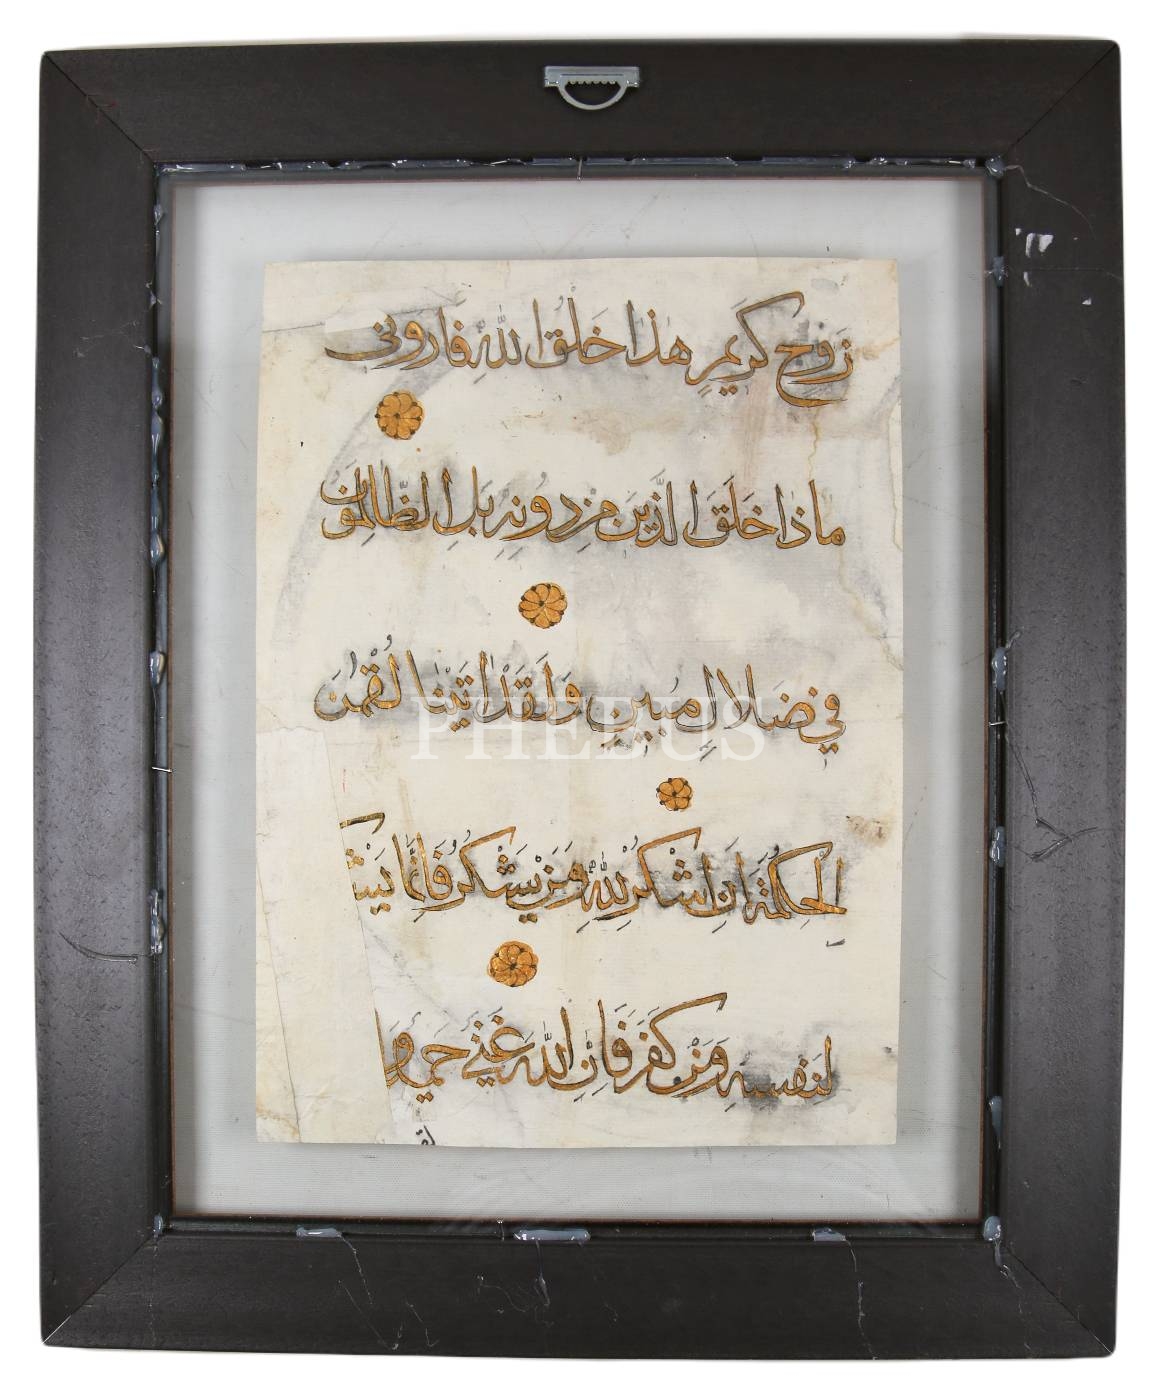 زَوْجٍ كَرِيمٍ هٰذَا خَلْقُ اللّٰهِ فَأَرُونِي
مَاذَا خَلَقَ الَّذِينَ مِنْ دُونِهِ بَلِ الظَّالِمُونَ
فِي ضَلَالٍ مُبِينٍ وَلَقَدْ اٰتَيْنَا لُقْمٰنَ
الْحِكْمَةَ أَنِ اشْكُرْ لِلّٰهِ وَمَنْ يَشْكُرْ فَإِنَّمَا يَشْ
لِنَفْسِهِ وَمَنْ كَفَرَ فَإِنَّ اللّٰهَ غَنِيٌّ حَمِيدٌ و
PHEBUS